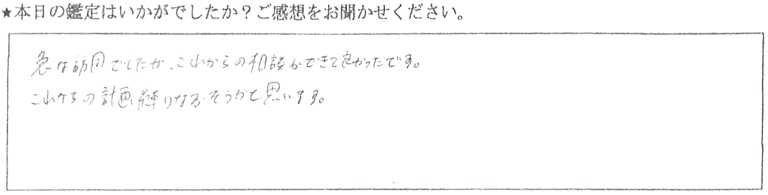 ★本日の鑑定はいかがでしたか？ご感想をお聞かせください。
急な訪問でしたが、これからの相談ができて良かったです。
これからの計画 練りなおそうかと思います。